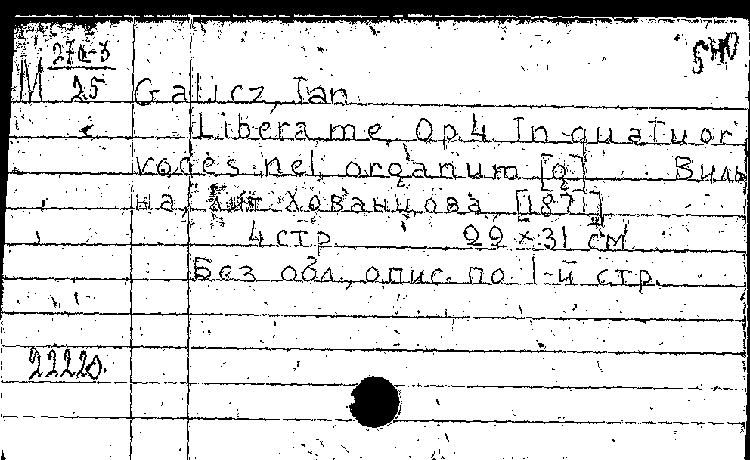 М 27а-3
25
Galicz, Jan.
Libera me. Op. 4. In quatuor
voces nel organum [Q] Виль
на, Хованцова, [187]
4 стр. 22 × 31 см
Без обл., опис. по 1-й стр.
22220.